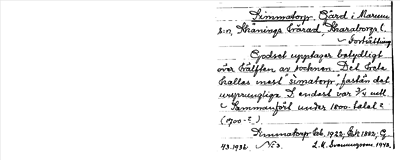 Simmatorp. Gård i Marum
s:n, Skånings härad, Skaraborgs l.
Fortsättning
Godset upptager betydligt
över hälften av socknen. Det hela
kallas mest "Simatorp", fastän det
ursprungliga S. endast var 3/4 mtl.
Sammanfört under 1800-talet?
(1700-?).
Simmatorp 1922, 1882, G
43.1936. No 3. L.M. Svenungsson. 1943.